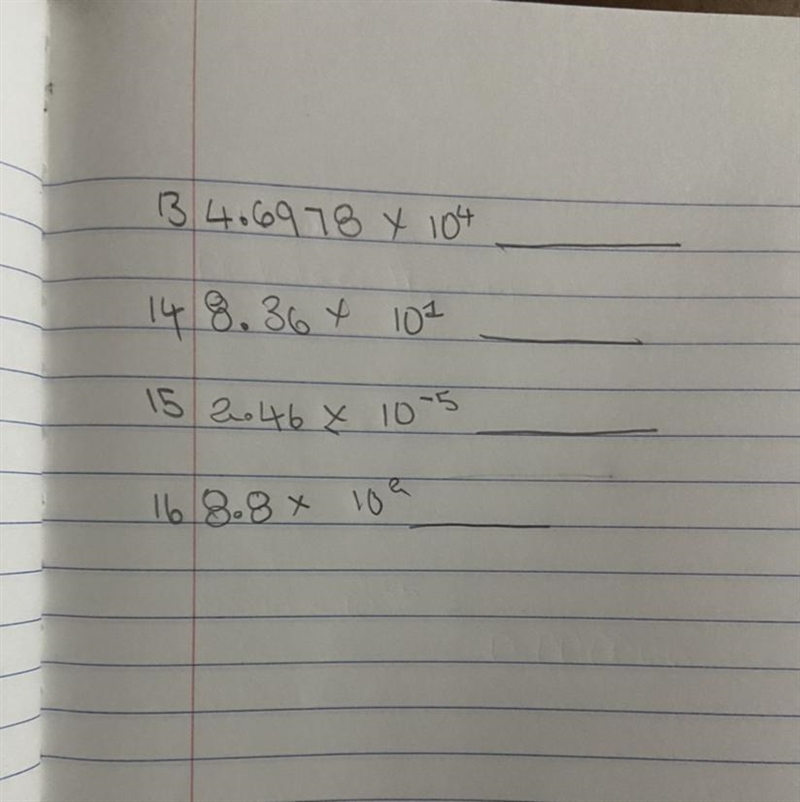 13 4.6978 × 10⁴ ________
14 8.36 × 10¹ ________
15 2.46 × 10⁻⁵ ________
16 8.8 × 10² ________